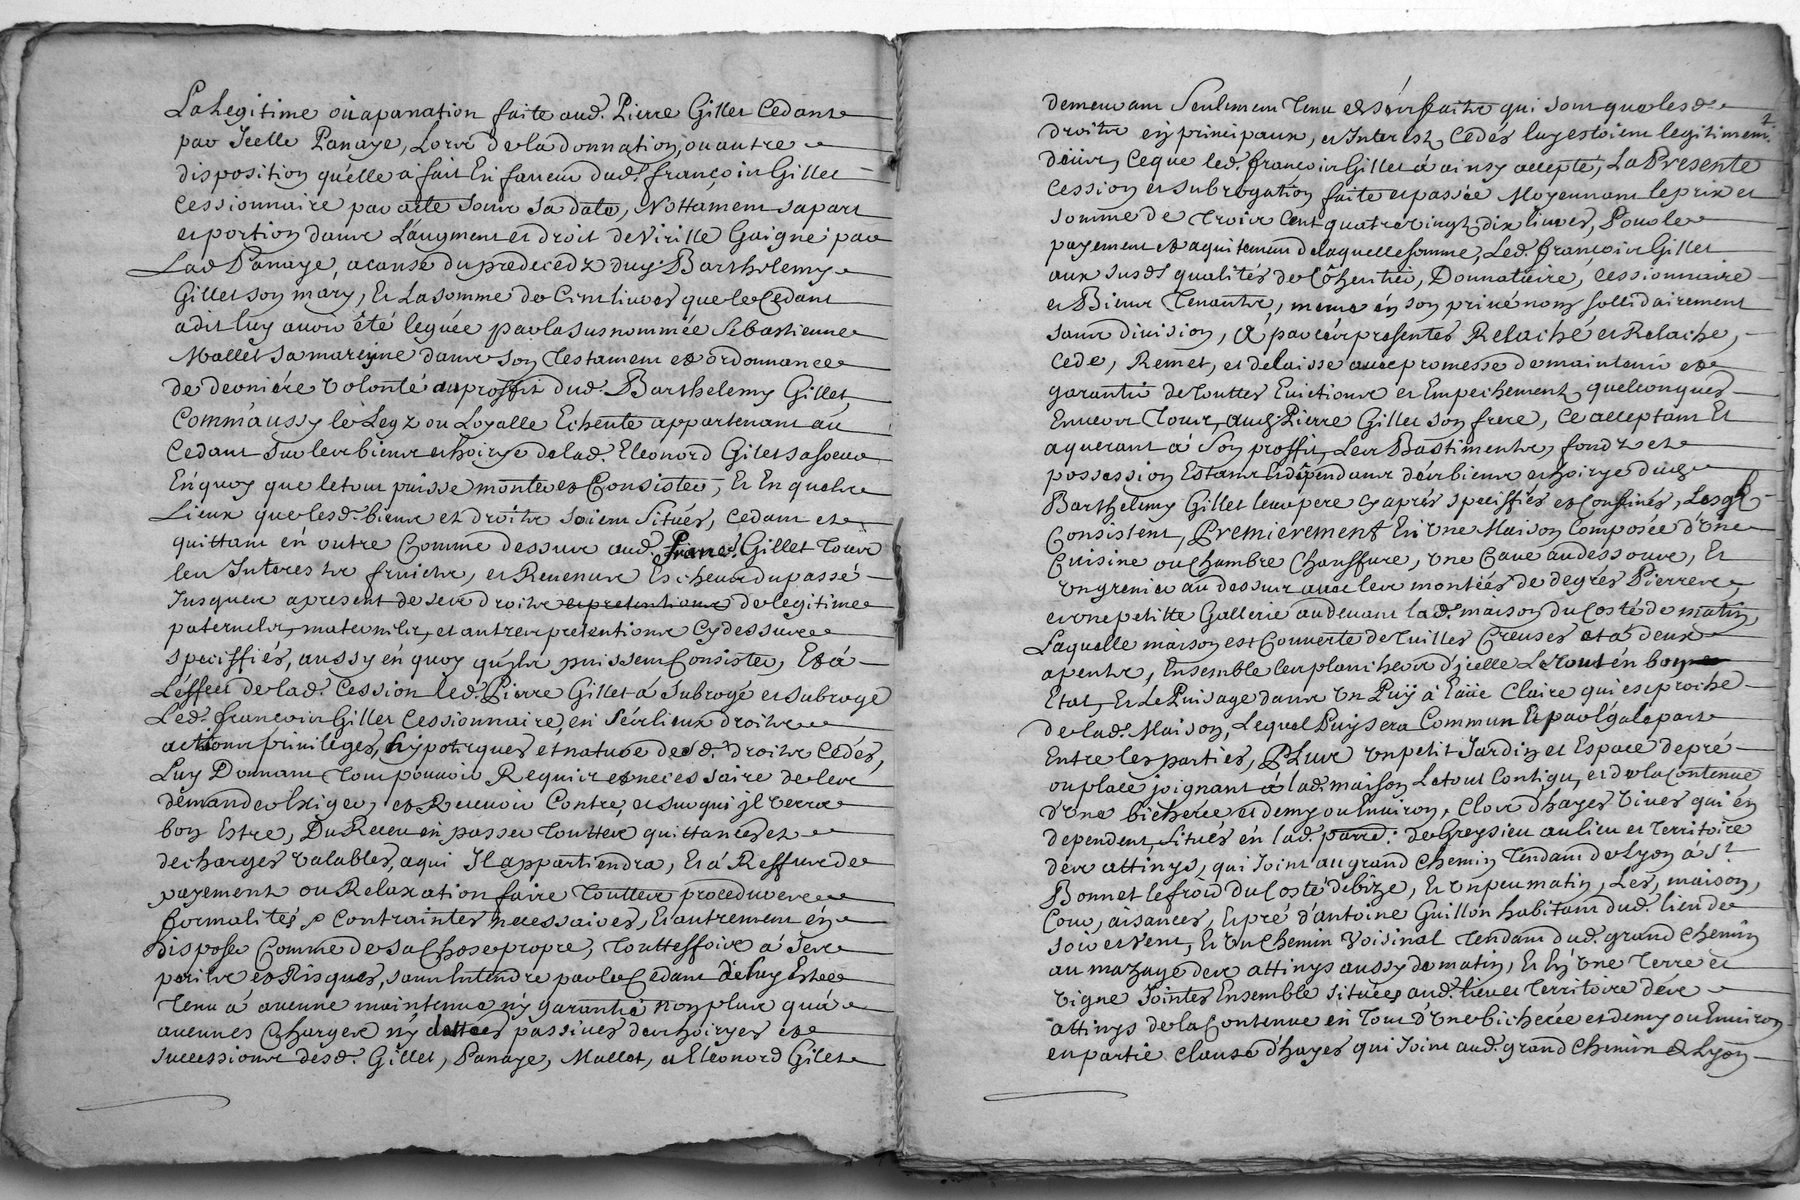 La legitime ou apanation faite aud. Pierre Gillet Cedant
par Icelle Panaye, Lors de la donnation, ou autre
disposition qu'elle a fait En faveur dud. françois Gillet
Cessionnaire par acte sous sa date, Nottament sa part
et portion dans L'augment et droit de Virille Gaigné par
Lad Panaye, a cause du predecedz duy Barthelemy
Gillet son mary, Et La somme de Cint livres que le Cedant
a dit luy avoir été leguée par la susnommée Sebastienne
Mallet sa mareyne dans son Testament et ordonnance
de derniére volonté au proffit dud. Barthelemy Gillet,
Comm'aussy le Legz ou Loyalle Echeute appartenant au
Cedant sur les biens et hoirye de lad. Eleonord Gilet sa soeur
En quoy que le tout puisse monter et Consister, Et En quels
Lieux que lesd. biens et droits soient Situés, Cedant et
quittant en outre Comme dessus aud. franc. Gillet Tous
les Interests fruits, et Revenus Escheus du passé
Jusques a present de ses droits et pretentions de legitime
paternels, maternels, et autres pretentions Cy dessus
speciffiés, aussy en quoy qu'ils puissent Consister, Et á
L'effect de lad. Cession led. Pierre Gillet á subrogé et subroge
Led. françois Gillet Cessionnaire, en sés lieux droits
actions privileges, hypoteques et nature desd. droits Cedés,
Luy Donnant Tout pouvoir Requis et necessaire de les
demander Exiger, et Recevoir Contre, et sur qui jl verra
bon Estre, Du Receu en passer Touttes quittances et
decharges valables, a qui Il appartiendra, Et á Reffus de
payement ou Relaxation faire Touttes procedures
formalités & Contraintes necessaires, Et autrement én
disposer Comme de sa Chose propre, Touttesfois á ses
perils et Risques, sans Entendre par le Cedant de luy Estre
Tenu á aucune maintenue ny garantie non plus qu'á
aucunes Charges ny dettes passives des hoiryes et
successions desd. Gillet, Panaye, Mallet, et Eléonord Gilet
2
demeurant Seulement Tenu de ses faits qui sont que lesd.
droits en principaux, et Interests Cedés luy estoient legitimement
deüs, Ce que led. françois Gillet á ainsy accepté, La Presente
Cession et subrogation faite et passée Moyennant le prix et
somme de Trois Cent quatre vingt dix livres, Pour le
payement et aquitement de laquelle somme, Led. françois Gillet
aux susd. qualités de Cöheritier, Donnataire, Cessionnaire
et Biens Tenants, meme én son privé nom sollidairement
sans division, A par cés presentes Relaché et Relache,
Cede, Remet, et delaisse avec promesse de maintenir et
garantir de Touttes Evictions et Empechement quelconques
Envers Tous, aud. Pierre Gillet son frere, Ce acceptant Et
aquerant á son proffit, Les Bastiments, fondz et
possession Estant Indépendans dés biens et hoirye dud.
Barthelemy Gillet leur pere Cy aprés speciffiés et Confinés, Lesq.
Consistent, Premierement En Une Maison Composée d'Une
Cuisine ou Chambre Chauffure, Une Cave au dessous, Et
Un grenier au dessus avec les montées de degrés Pierres,
et Une petitte Gallerie au devant lad. maison du Costé de matin,
Laquelle maison est Couverte de Tuilles Creuses et á deux
apents, Ensemble les planchers d'jcelle Le Tout én bon
Etat, Et Le Puisage dans Un Puÿ á Eaüe Claire qui est proche
de lad. Maison, Lequel Puy sera Commun Et par l'égale part
Entre les parties, Plus Un petit Jardin et Espace de pré
ou place joignant á lad. maison Le tout Contigu, et de la Contenue
d'Une bicherée et demy ou Environ, Clos d'hayes vives qui én
dependent situés én lad. parre. de Greysieu au lieu et Territoire
des attinys, qui Joint au grand Chemin Tendant de Lyon á St.
Bonnet le froid du Costé de bize, Et Un peu matin, Les, maison,
Cour, aisances, Et pré d'antoine Guillon habitant dud. lieu de
soir et vent, Et Un Chemin Voisinal Tendant dud. grand Chemin
au mazage des attinys aussy de matin, Et En Une Terre et
vigne Jointes Ensemble situées aud. lieu et Territoire des
attinys de la Contenue en Tout d'Une bicherée et demy ou Environ
en partie Clause d'hayes qui Joint aud. grand Chemin de Lyon